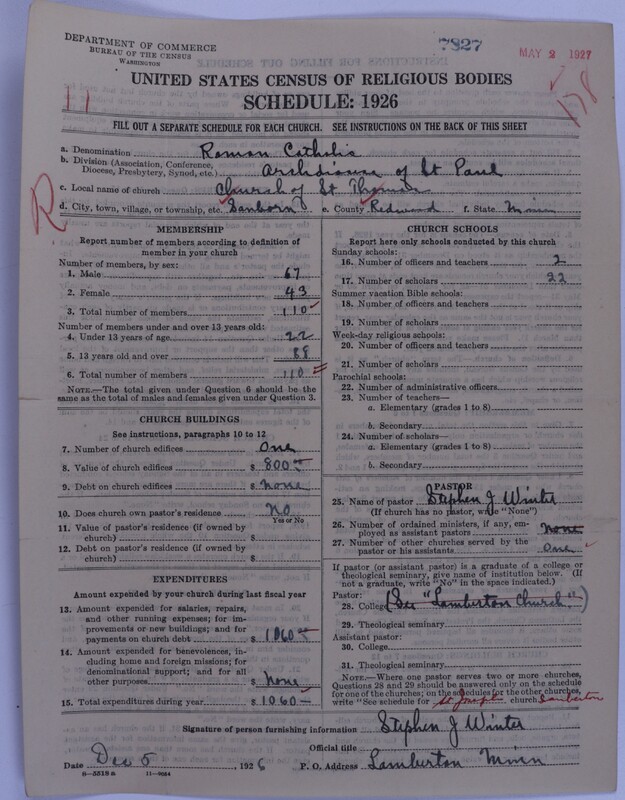 DEPARTMENT OF COMMERCE
BUREAU OF THE CENSUS
WASHINGTON
7827
MAY 2 1927
178
UNITED STATES CENSUS OF RELIGIOUS BODIES
SCHEDULE: 1926
FILL OUT A SEPARATE SCHEDULE FOR EACH CHURCH. SEE INSTRUCTIONS ON THE BACK OF THIS SHEET
a. Denomination Roman Catholic
b. Division (Association, Conference, Diocese, Presbytery, Synod, etc.) Archdiocese of St Paul
c. Local name of church Church of St Thomas
d. City, town, village, or township, etc. Sanborn e. County Redwood f. State Minn
R
MEMBERSHIP
Report number of members according to definition of
member in your church
Number of members, by sex:
1. Male 67
2. Female 43
3. Total number of members 110
Number of members under and over 13 years old:
4. Under 13 years of age 22
5. 13 years old and over 88
6. Total number of members 110
NOTE.—The total given under Question 6 should be
same as the total of males and females given under Question 3.
CHURCH BUILDINGS
See instructions, paragraphs 10 to 12
7. Number of church edifices One
8. Value of church edifices $ 800
9. Debt on church edifices $ None
10. Does church own pastor's residence? No
Yes or No
11. Value of pastor's residence (if owned by
church) $
12. Debt on pastor's residence (if owned by
church) $
EXPENDITURES
Amount expended by your church during last fiscal year
13. Amount expended for salaries, repairs,
and other running expenses; for im-
provements or new buildings; and for
payments on church debt $ 1060
14. Amount expended for benevolences, including home and foreign missions; for
denominational support; and for all
other purposes $ None
15. Total expenditures during year $ 1060
CHURCH SCHOOLS
Report here only schools conducted by this church
Sunday schools:
16. Number of officers and teachers 2
17. Number of scholars 22
Summer vacation Bible schools:
18. Number of officers and teachers
19. Number of scholars
Week-day religious schools:
20. Number of officers and teachers
21. Number of scholars
Parochial schools:
22. Number of administrative officers
23. Number of teachers—
a. Elementary (grades 1 to 8)
b. Secondary
24. Number of scholars—
a. Elementary (grades 1 to 8)
b. Secondary
PASTOR
25. Name of pastor Stephen J Winter
(If church has no pastor, write "None")
26. Number of ordained ministers, if any, em-
ployed as assistant pastors None
27. Number of other churches served by the
pastor or his assistants One
If pastor (or assistant pastor) is a graduate of a college or
theological seminary, give name of institution below. (If
not a graduate, write "No" in the space indicated.)
Pastor:
28. College (See "Lamberton Church")
29. Theological seminary
Assistant pastor:
30. College
31. Theological seminary
NOTE.—Where one pastor serves two or more churches,
Questions 28 and 29 should be answered only on the schedule
for one of the churches; on the schedules for the other churches,
write "See schedule for St Joseph church Lamberton
Signature of person furnishing information Stephen J Winter
Official title
Date Dec 5 1926 P. O. Address Lamberton Minn
8—5518a 11—9024